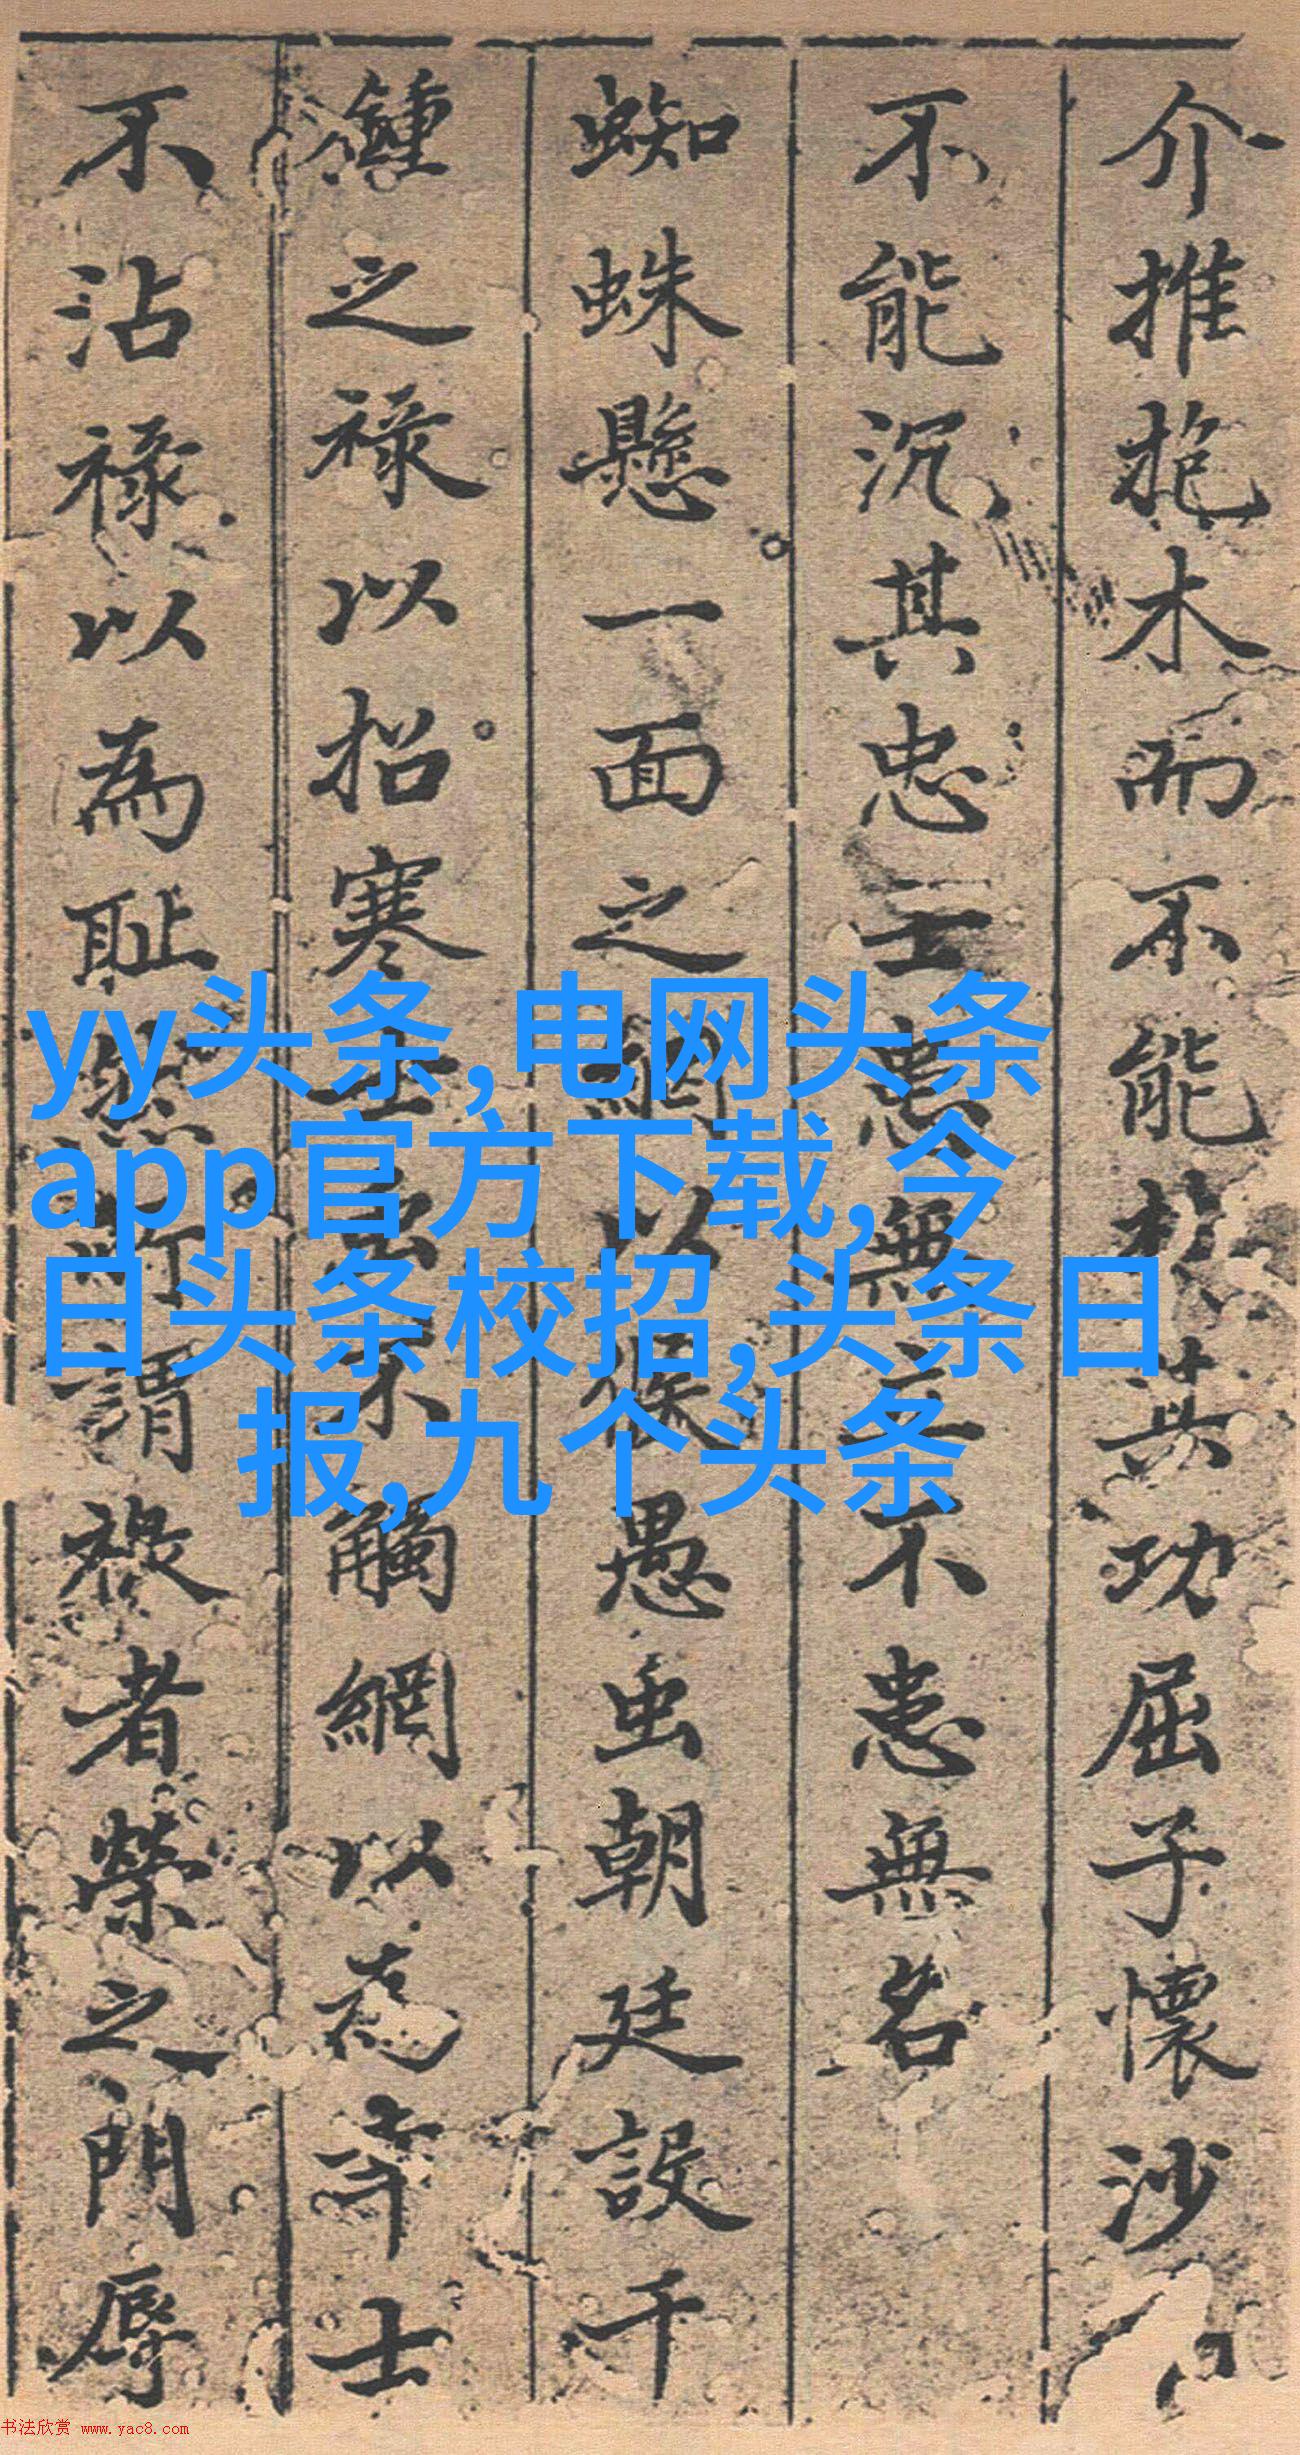 介推抱木而不能其功屈子懷沙
不能沉其忠士患無立不患無名
蜘蛛懸一面之網以候愚虫朝廷設千
鍾之祿以招寒士虫不觸網以為幸士
不沾祿以為恥然所謂祿者榮之門辱
yy头条,电网头条
app官方下载,今
日头条校招,头条日
报,九个头条
书法欣赏 www.yac8.com